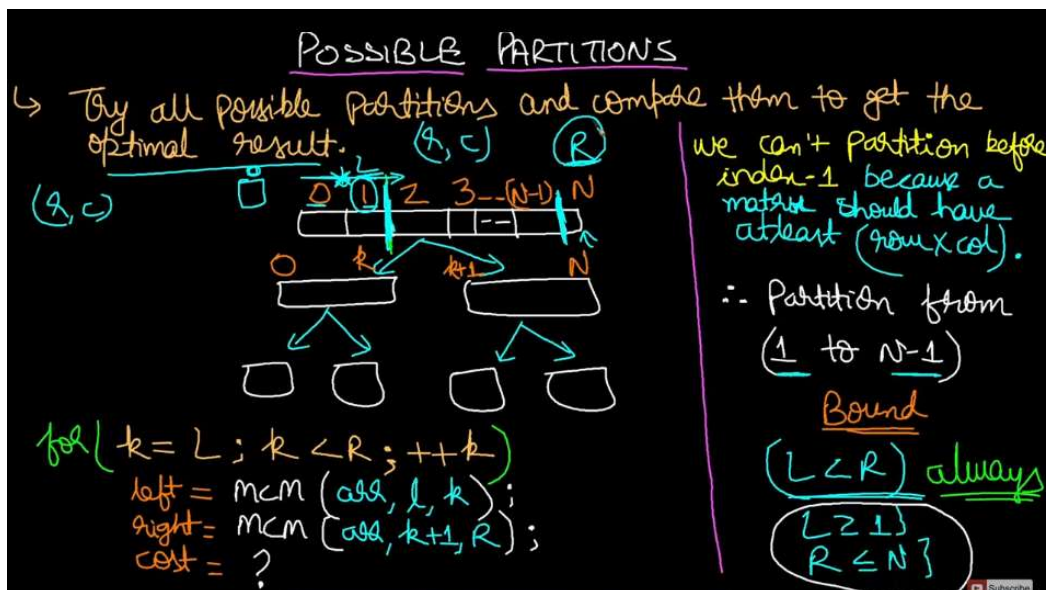 POSSIBLE PARTITIONS
↳ Try all possible partitions and compare them to get the
optimal result.
(r, c)
R
(r, c)
L
0 1 2 3--(N-1) N
--
0 k k+1 N
for( k = L ; k < R ; ++k )
left = MCM (arr, l, k);
right = MCM (arr, k+1, R);
cost = ?
we can't partition before
index-1 because a
matrix should have
atleast (row X col).
∴ Partition from
(1 to N-1)
Bound
(L < R) always
L ≥ 1}
R ≤ N}
Subscribe